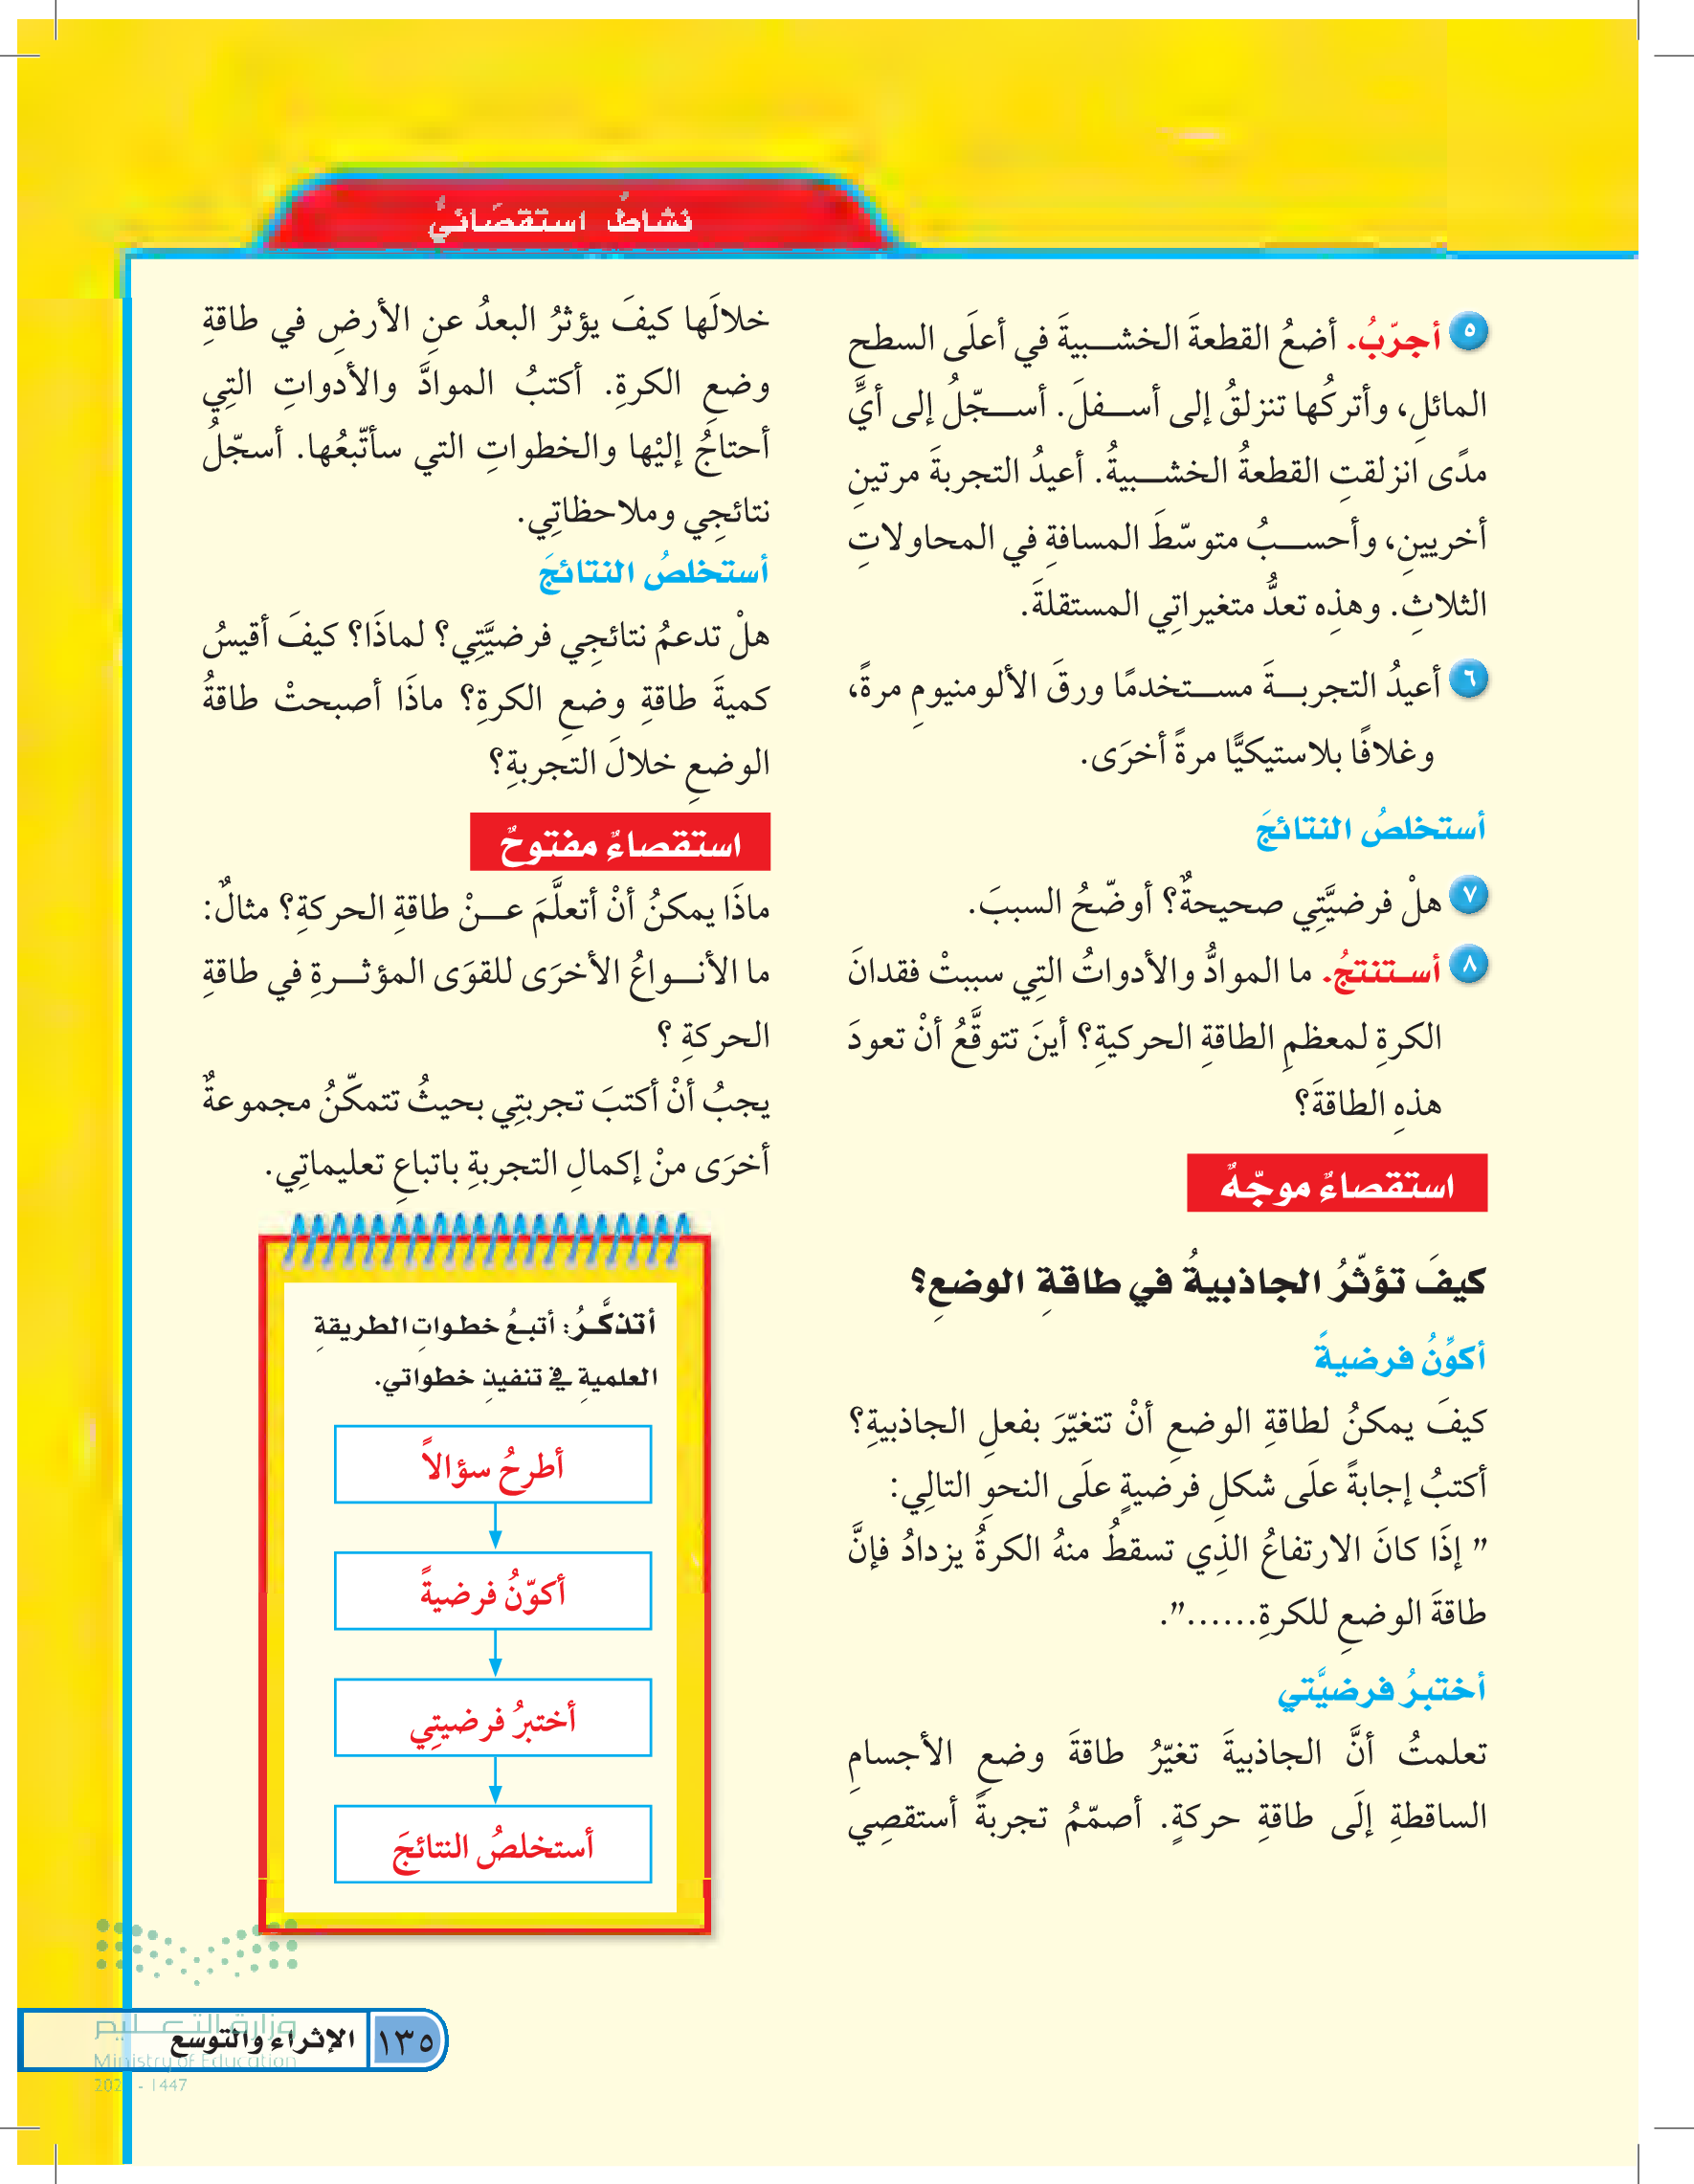 نشاطٌ استقصَائيٌّ
٥ أجرّبُ. أضعُ القطعةَ الخشـبيةَ في أعلَى السطحِ
المائلِ، وأتركُها تنزلقُ إلى أسـفلَ. أسـجّلُ إلى أيِّ
مدًى انزلقتِ القطعةُ الخشـبيةُ. أعيدُ التجربةَ مرتينِ
أخريينِ، وأحسـبُ متوسّطَ المسافةِ في المحاولاتِ
الثلاثِ. وهذِه تعدُّ متغيراتِي المستقلةَ.
٦ أعيدُ التجربـةَ مسـتخدمًا ورقَ الألومنيومِ مرةً،
وغلافًا بلاستيكيًّا مرةً أخرَى.
أستخلصُ النتائجَ
٧ هلْ فرضيَّتِي صحيحةٌ؟ أوضّحُ السببَ.
٨ أسـتنتجُ. ما الموادُّ والأدواتُ التِي سببتْ فقدانَ
الكرةِ لمعظمِ الطاقةِ الحركيةِ؟ أينَ تتوقَّعُ أنْ تعودَ
هذهِ الطاقةَ؟
استقصاءٌ موجّهٌ
كيفَ تؤثّرُ الجاذبيةُ في طاقةِ الوضعِ؟
أكوِّنُ فرضيةً
كيفَ يمكنُ لطاقةِ الوضعِ أنْ تتغيّرَ بفعلِ الجاذبيةِ؟
أكتبُ إجابةً علَى شكلِ فرضيةٍ علَى النحوِ التالِي:
" إذَا كانَ الارتفاعُ الذِي تسقطُ منهُ الكرةُ يزدادُ فإنَّ
طاقةَ الوضعِ للكرةِ......".
أختبرُ فرضيَّتي
تعلمتُ أنَّ الجاذبيةَ تغيّرُ طاقةَ وضعِ الأجسامِ
الساقطةِ إلَى طاقةِ حركةٍ. أصمّمُ تجربةً أستقصِي
خلالَها كيفَ يؤثرُ البعدُ عنِ الأرضِ في طاقةِ
وضعِ الكرةِ. أكتبُ الموادَّ والأدواتِ التِي
أحتاجُ إليْها والخطواتِ التي سأتّبعُها. أسجّلُ
نتائجِي وملاحظاتِي.
أستخلصُ النتائجَ
هلْ تدعمُ نتائجِي فرضيَّتِي؟ لماذَا؟ كيفَ أقيسُ
كميةَ طاقةِ وضعِ الكرةِ؟ ماذَا أصبحتْ طاقةُ
الوضعِ خلالَ التجربةِ؟
استقصاءٌ مفتوحٌ
ماذَا يمكنُ أنْ أتعلَّمَ عـنْ طاقةِ الحركةِ؟ مثالٌ:
ما الأنـواعُ الأخرَى للقوَى المؤثـرةِ في طاقةِ
الحركةِ ؟
يجبُ أنْ أكتبَ تجربتِي بحيثُ تتمكّنُ مجموعةٌ
أخرَى منْ إكمالِ التجربةِ باتباعِ تعليماتِي.
أتذكَّـرُ: أتبـعُ خطـواتِ الطريقةِ
العلميةِ في تنفيذِ خطواتي.
أطرحُ سؤالاً
أكوّنُ فرضيةً
أختبرُ فرضيتِي
أستخلصُ النتائجَ
وزارة التعليم
الإثراء والتوسع ١٣٥
Ministry of Education
1447